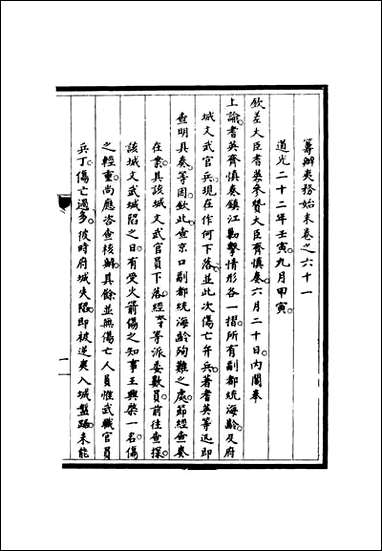 籌辦夷務始末卷之六十一
道光二十二年壬寅九月甲寅
欽差大臣耆英參贊大臣齊慎奏六月二十日內閣奉
上諭耆英齊慎奏鎮江勦擊情形各一摺所有副都統海齡及府
城文武官兵現在作何下落並此次傷亡弁兵著耆英等迅即
查明具奏等因欽此查京口副都統海齡殉難之處節經查奏
在案其該城文武官員下落經等派委數員前往查探
該城文武城陷之日有受火箭傷之知事王興榮一名傷
之輕重尚應咨查核辦其餘並無傷亡人員惟武職官員
兵丁傷亡過多彼時府城失陷即被逆夷入城盤踞未能
一